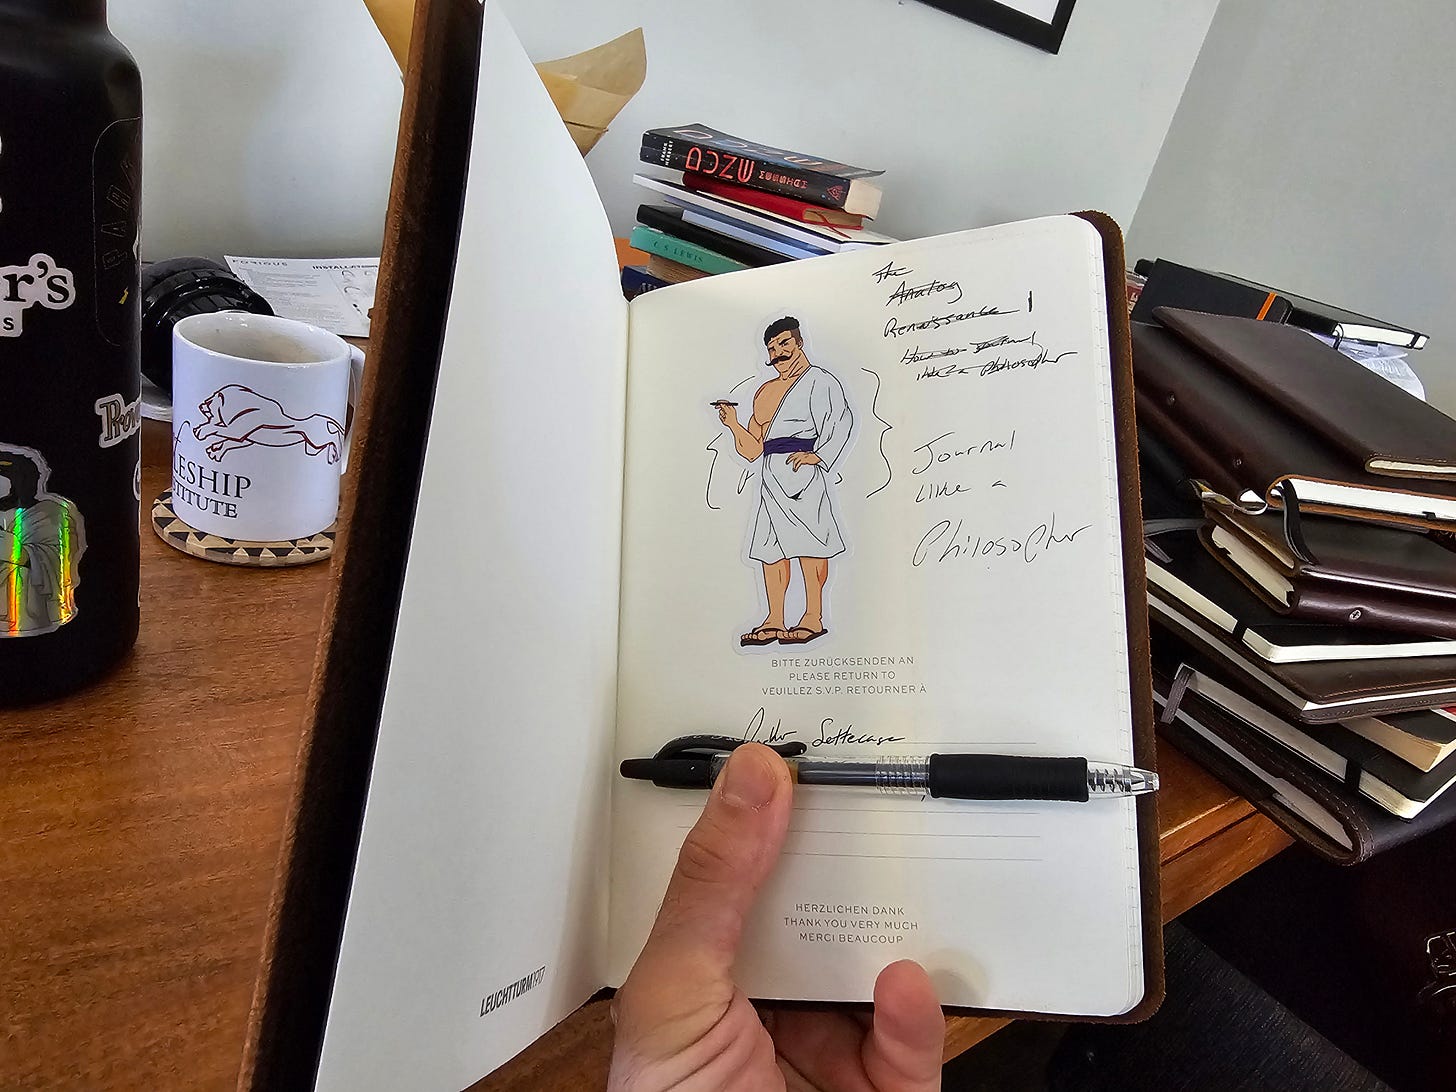 r's
S
ESHIP
TITUTE
INSTALLATION
C S LEWIS
The
Analog
Renaissance
How to Journal
like a Philosopher
Journal
Like a
Philosopher
BITTE ZURÜCKSENDEN AN
PLEASE RETURN TO
VEUILLEZ S.V.P. RETOURNER À
Settecase
HERZLICHEN DANK
THANK YOU VERY MUCH
MERCI BEAUCOUP
LEUCHTTURM1917